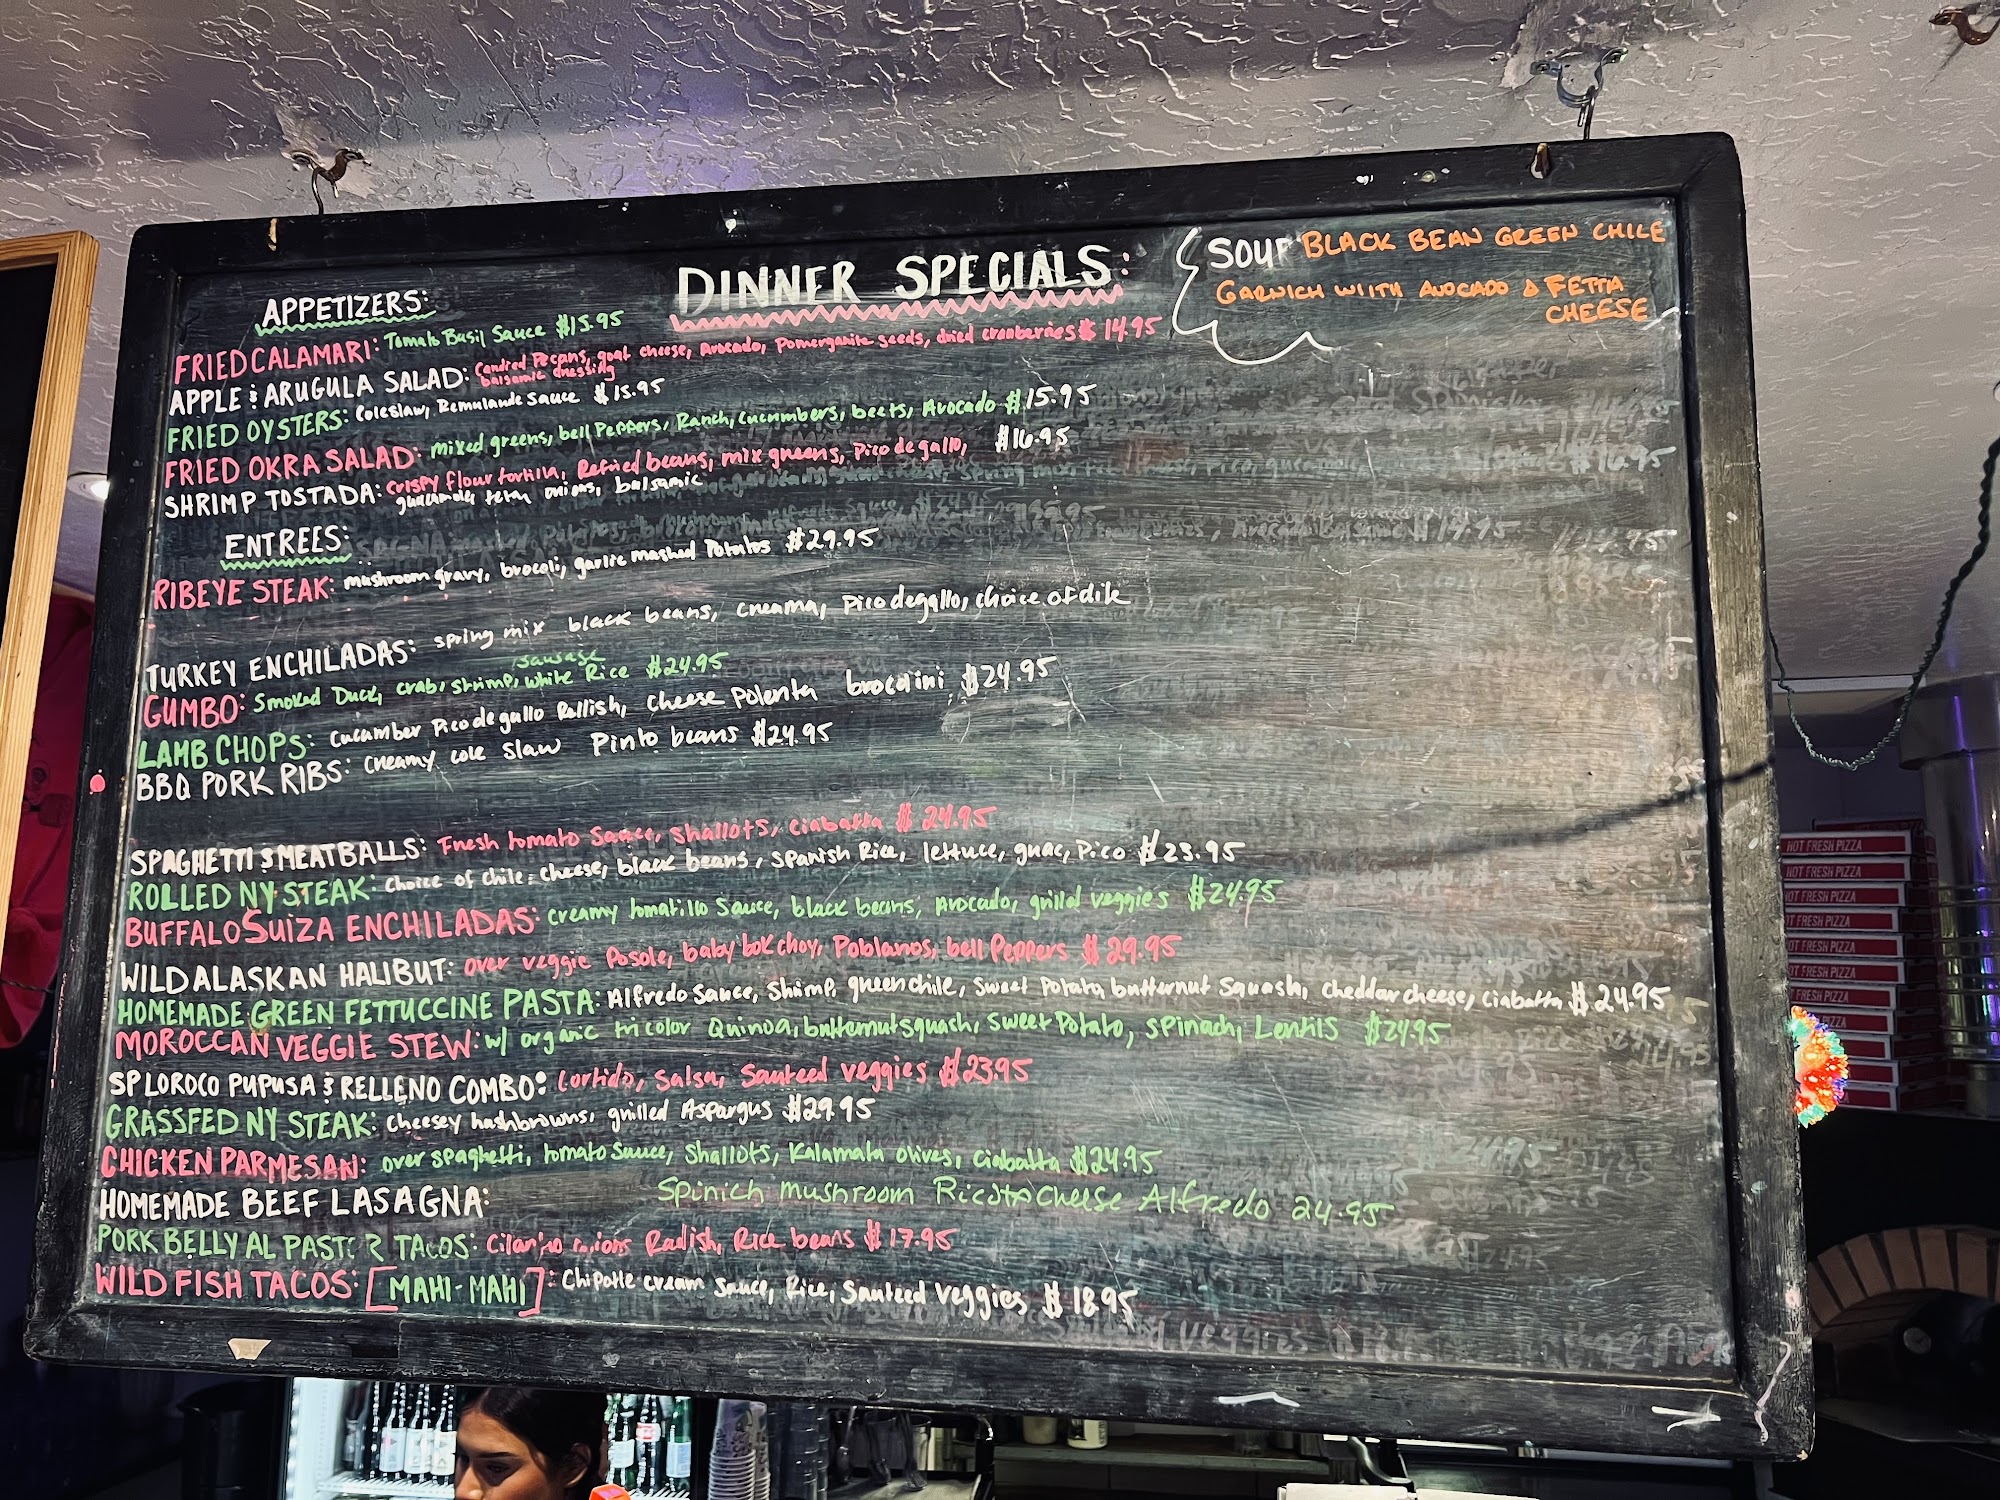 DINNER SPECIALS:
SOUP BLACK BEAN GREEN CHILE
GARNICH WIITH AVOCADO & FETTA
CHEESE
APPETIZERS:
FRIED CALAMARI: Tomato Basil Sauce $15.95
APPLE & ARUGULA SALAD: Candied Pecans, goat cheese, Avocado, Pomerganite seeds, dried cranberries $14.95
balsamic dressing
FRIED OYSTERS: Coleslaw, Remulaude Sauce $15.95
FRIED OKRA SALAD: mixed greens, bell Peppers, Ranch, Cucumbers, beets, Avocado $15.95
SHRIMP TOSTADA: Crispy flour tortilla, Refried beans, mix greens, Pico de gallo, $16.95
onions, balsamic
ENTREES:
RIBEYE STEAK: mushroom gravy, brocoli, garlic mashed Potatos $29.95
TURKEY ENCHILADAS: spring mix black beans, creama, Pico degallo, choice of
sausage
GUMBO: Smoked Duck, crab, shrimp, white Rice $24.95
LAMB CHOPS: cucumber Pico de gallo Rellish, cheese Polenta brocolini $24.95
BBQ PORK RIBS: creamy cole slaw Pinto beans $24.95
SPAGHETTI & MEATBALLS: Fresh tomato Sauce, Shallots, Ciabatta $24.95
ROLLED NY STEAK: choice of chile, cheese, black beans, Spanish Rice, lettuce, guac, Pico $23.95
BUFFALO SUIZA ENCHILADAS: creamy tomatillo Sauce, black beans, Avocado, grilled veggies $24.95
WILD ALASKAN HALIBUT: over veggie Posole, baby bok choy, Poblanos, bell Peppers $29.95
HOMEMADE GREEN FETTUCCINE PASTA: Alfredo Sauce, Shrimp, green chile, Sweet Potato, butternut Squash, Cheddar cheese, Ciabatta $24.95
MOROCCAN VEGGIE STEW: w/ organic tricolor Quinoa, butternut squash, Sweet Potato, spinach, Lentils $24.95
SP LOROCO PUPUSA & RELLENO COMBO: Cortido, Salsa, Sauteed veggies $23.95
GRASSFED NY STEAK: cheesey hashbrowns, grilled Aspargus $29.95
CHICKEN PARMESAN: over spaghetti, tomato Sauce, Shallots, Kalamata olives, Ciabatta $24.95
HOMEMADE BEEF LASAGNA: Spinich mushroom Ricotta cheese Alfredo 24.95
PORK BELLY AL PASTOR TACOS: Cilantro onions Radish, Rice beans $17.95
WILD FISH TACOS: [MAHI-MAHI]: Chipotle cream Sauce, Rice, Sauteed Veggies $18.95
HOT FRESH PIZZA
HOT FRESH PIZZA
HOT FRESH PIZZA